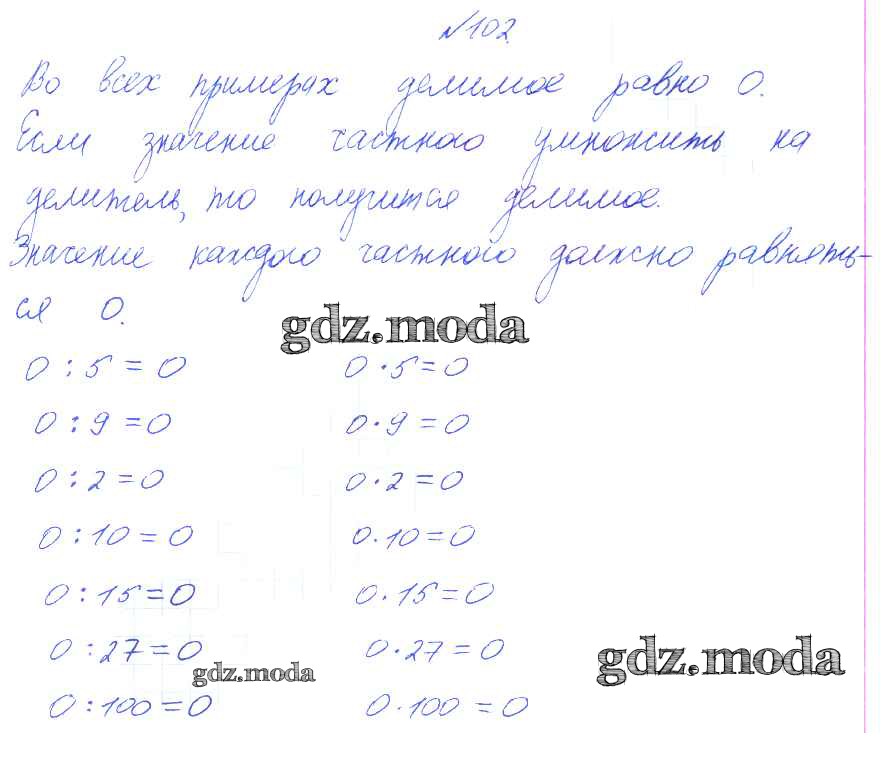 №102.
Во всех примерах делимое равно 0.
Если значение частного умножить на
делитель, то получится делимое.
Значение каждого частного должно равнять-
ся 0.
gdz.moda
0 : 5 = 0 0 · 5 = 0
0 : 9 = 0 0 · 9 = 0
0 : 2 = 0 0 · 2 = 0
0 : 10 = 0 0 · 10 = 0
0 : 15 = 0 0 · 15 = 0
0 : 27 = 0 0 · 27 = 0
gdz.moda
gdz.moda
0 : 100 = 0 0 · 100 = 0